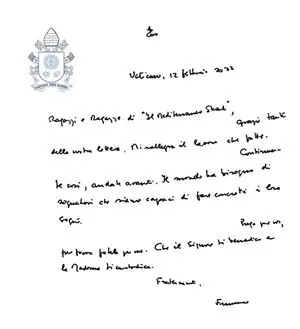 Vaticano, 12 febbraio 2022
Ragazzi e Ragazze di "Il Mediterraneo", Grazie tante
della vostra lettera. Mi rallegra il lavoro che fate.
Continua-
te così, andate avanti. Il mondo ha bisogno di
sognatori che siano capaci di fare concreti i loro
sogni. Prego per voi,
per favore fatelo per me. Che il Signore vi benedica e
la Madonna vi custodisca.
Fraternamente,
Francesco